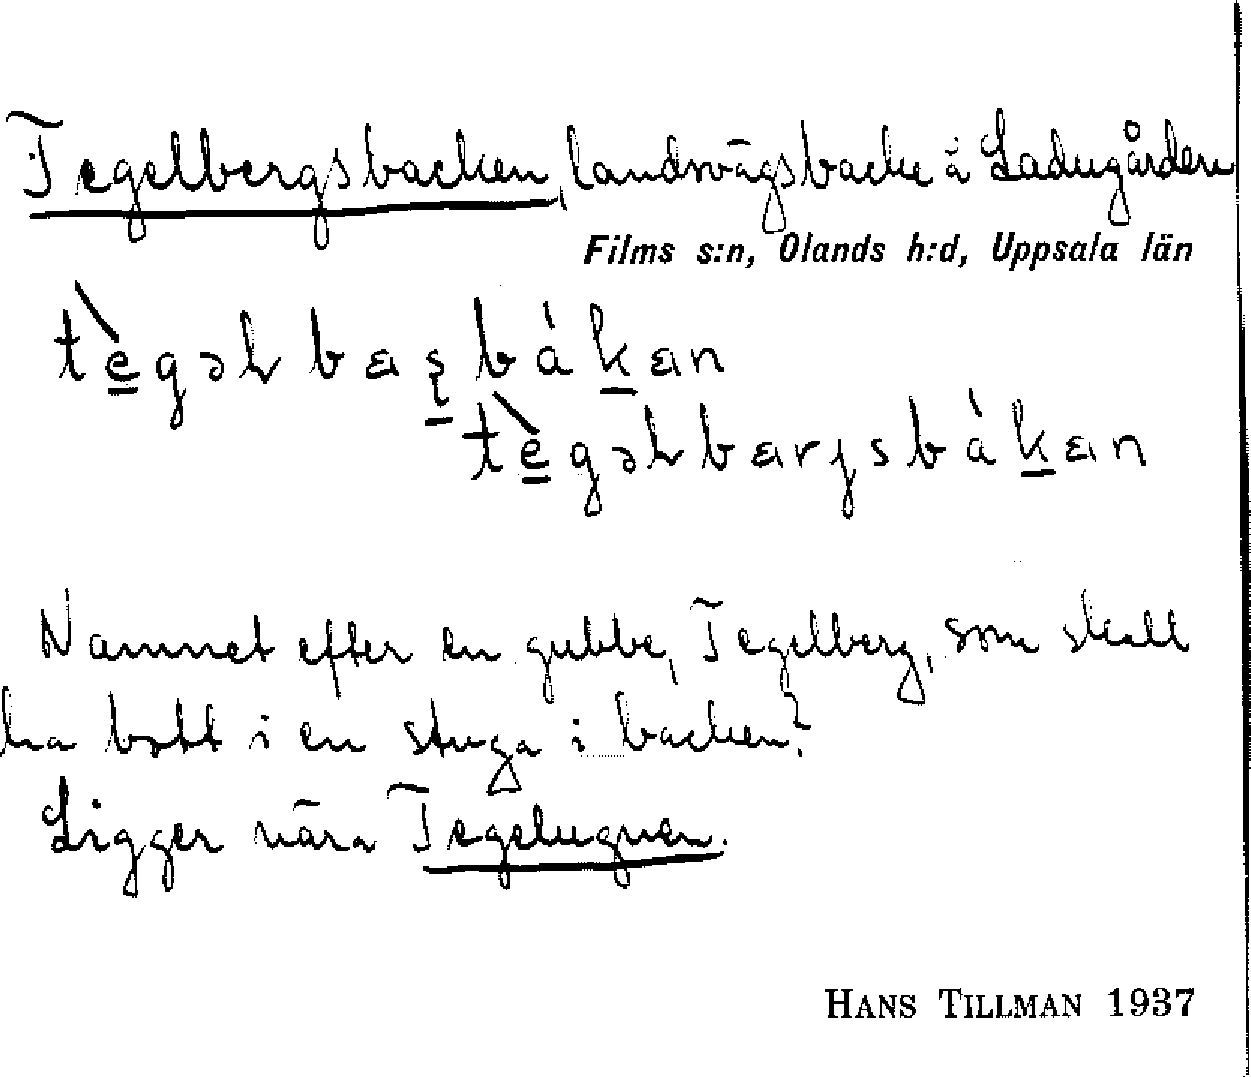 Tegelbergsbacken, landsvägsbacke å Ladugården
Films s:n, Olands h:d, Uppsala län
Namnet efter en gubbe, Tegelberg, som skall
ha bott i en stuga i backen?
Ligger nära Tegelugnen.
HANS TILLMAN 1937